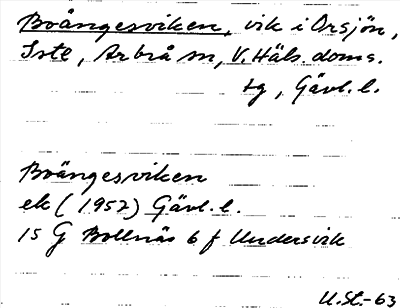 Boängesviken, vik i Orsjön,
Iste, Arbrå sn, V. Häls. doms.
tg, Gävl. l.
Boängesviken
ek (1952) Gävl. l.
15 G Bollnäs 6 f Undersvik
U.St.-63